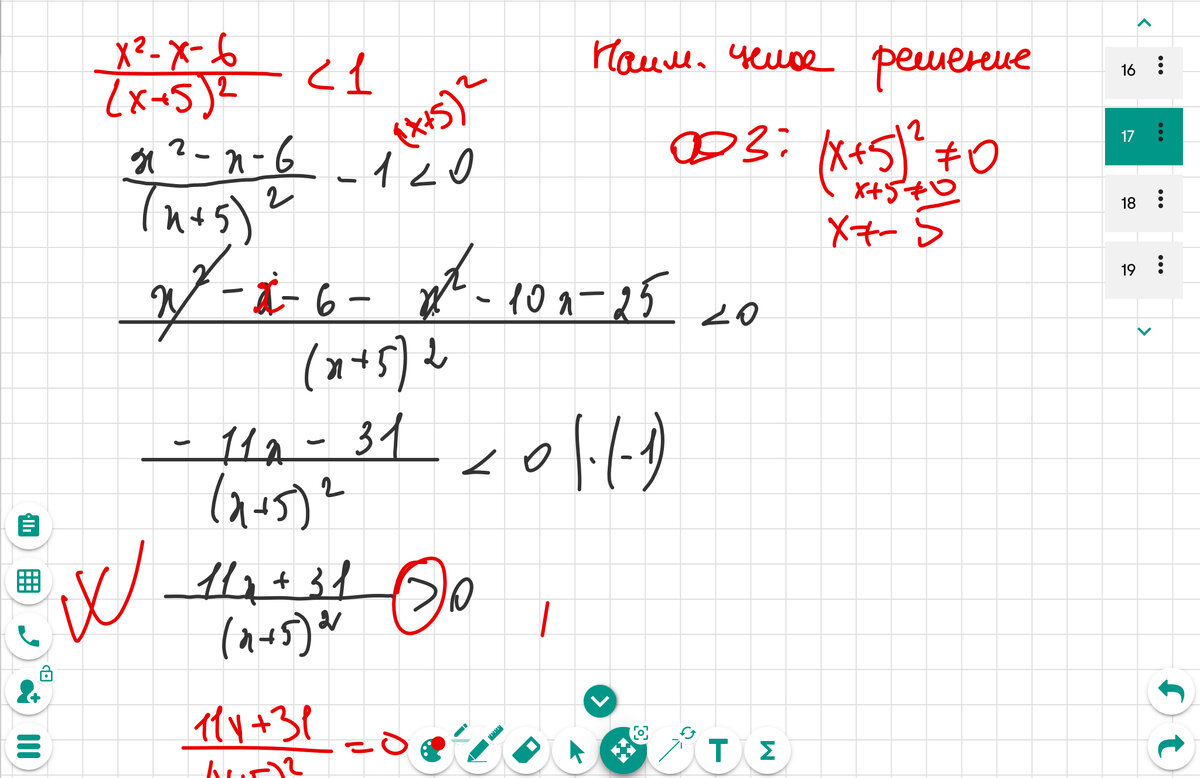 x² - x - 6 / (x+5)² < 1
Наим. целое решение
x² - x - 6 / (x+5)² - 1 (x+5)² < 0
ОДЗ: (x+5)² ≠ 0
x+5 ≠ 0
x ≠ -5
x² - x - 6 - x² - 10x - 25 / (x+5)² < 0
-11x - 31 / (x+5)² < 0 | · (-1)
11x + 31 / (x+5)² > 0
11x + 31 / (x+5)² = 0
16
17
18
19
T
Σ